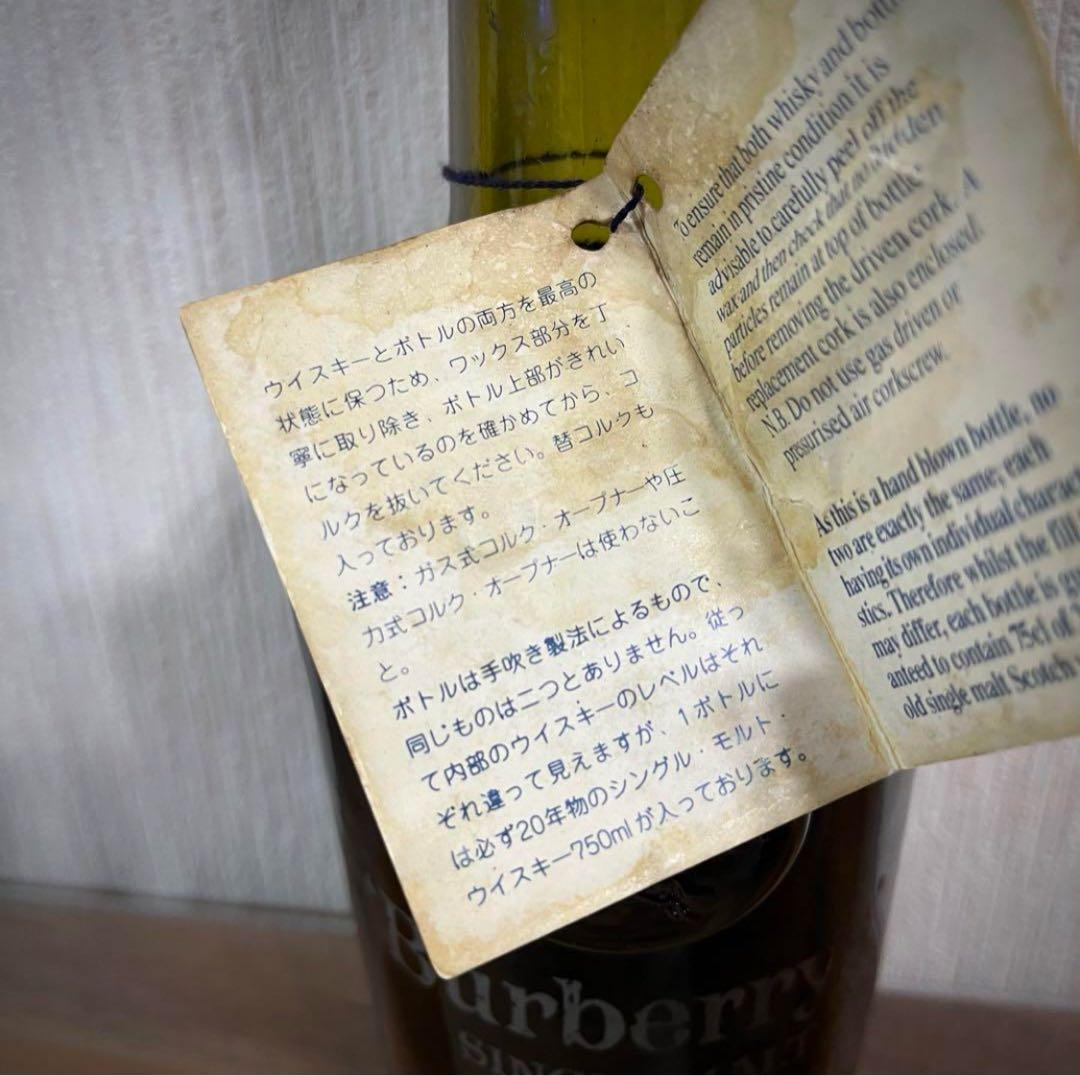 ウイスキーとボトルの両方を最高の
状態に保つため、ワックス部分を丁
寧に取り除き、ボトル上部がきれい
になっているのを確かめてから、コ
ルクを抜いてください。替コルクも
入っております。
注意：ガス式コルク・オープナーや圧
力式コルク・オープナーは使わないこ
と。
ボトルは手吹き製法によるもので、
同じものは二つとありません。従っ
て内部のウイスキーのレベルはそれ
ぞれ違って見えますが、1ボトルに
は必ず20年物のシングル・モルト・
ウイスキー750mlが入っております。
To ensure that both whisky and bottle
remain in pristine condition it is
advisable to carefully peel off the
wax and then check that no
particles remain at top of bottle
before removing the driven cork. A
replacement cork is also enclosed.
N.B. Do not use gas driven or
pressurised air corkscrew.
As this is a hand blown bottle, no
two are exactly the same; each
having its own individual charact
stics. Therefore whilst the fill
may differ, each bottle is gu
anteed to contain 75cl of
old single malt Scotch
Burberry
SING